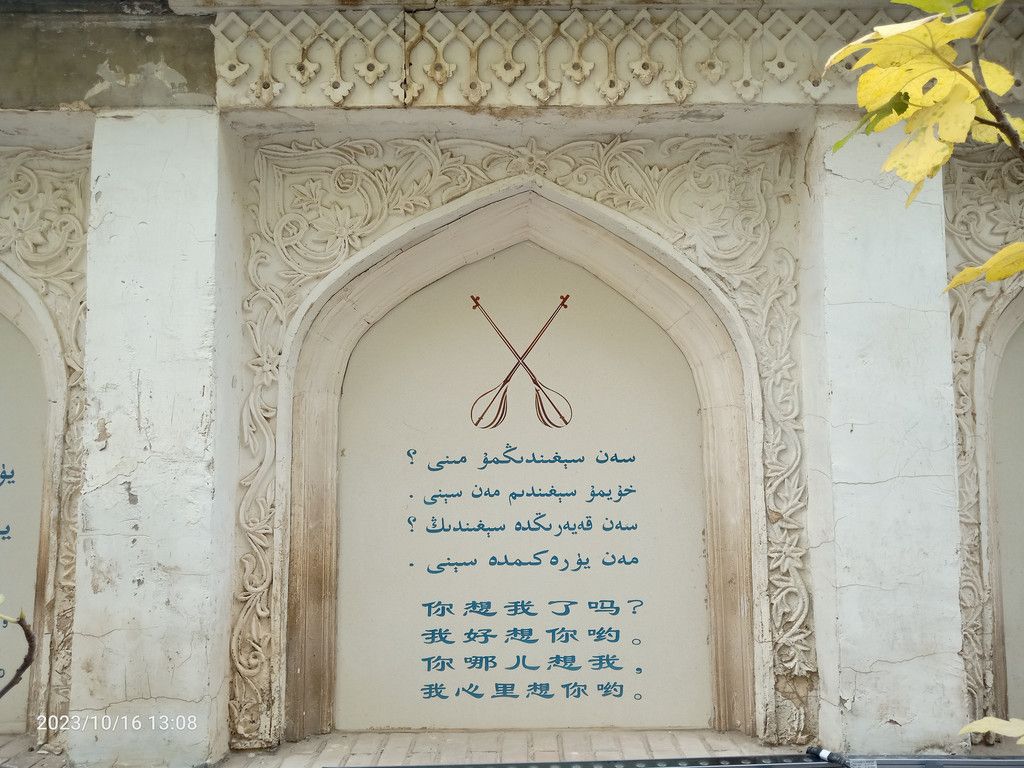 سەن سېغىندىڭمۇ مىنى ؟
خۇيمۇ سېغىندىم مەن سېنى .
سەن قەيەرىڭدە سېغىندىڭ ؟
مەن يۈرەكىمدە سېنى .
你想我了吗？
我好想你哟。
你哪儿想我，
我心里想你哟。
2023/10/16 13:08